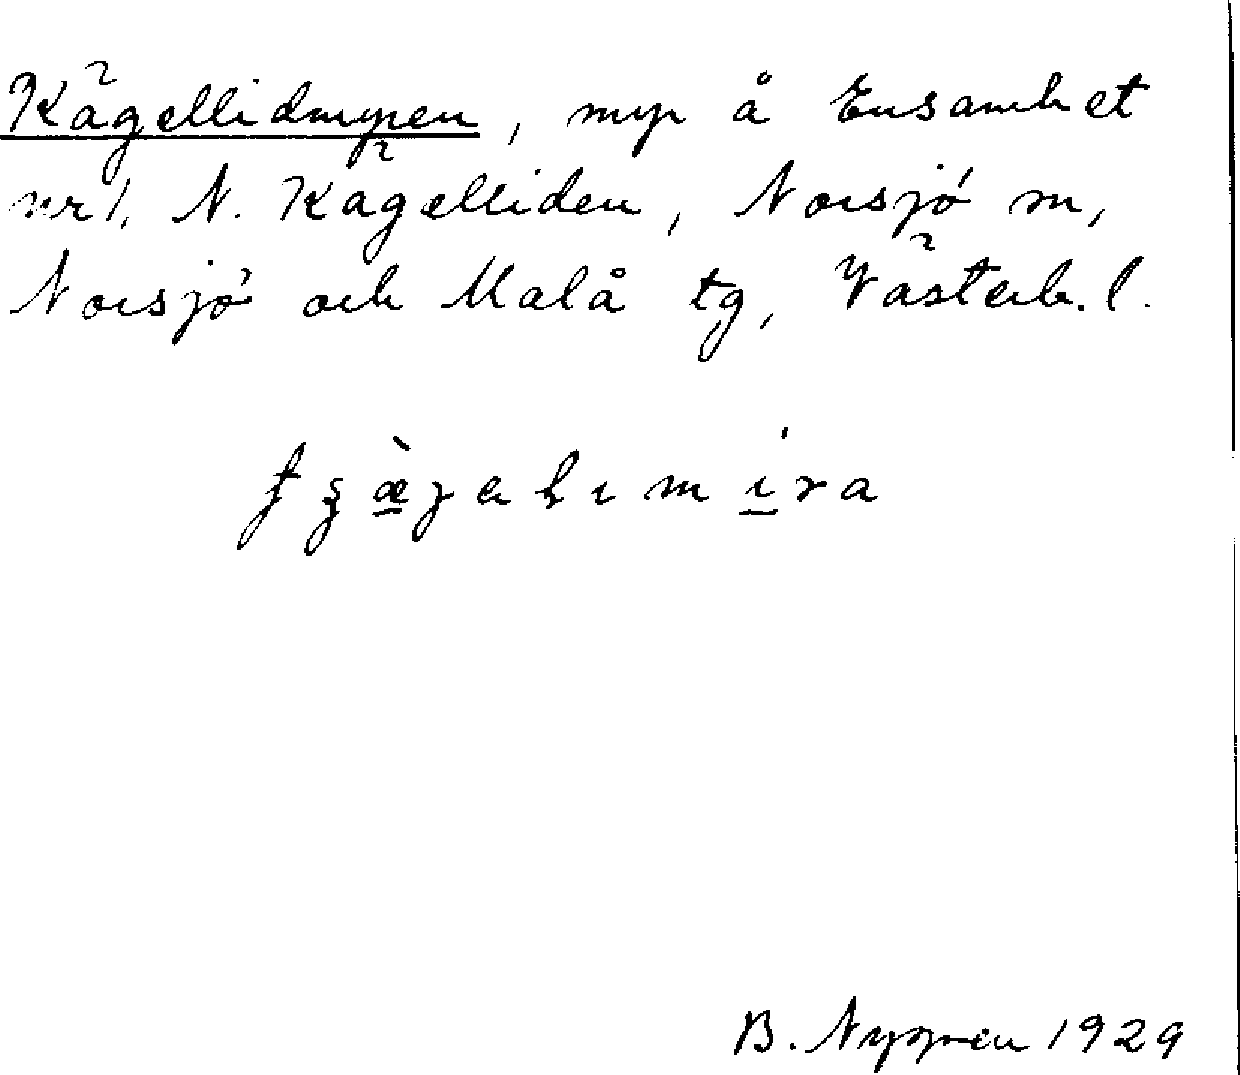 Kägellidmyren, myr å Ensamhet
nr 1, N. Kägelliden, Norsjö sn,
Norsjö och Malå tg, Västerb. l.
B. Nygren 1929